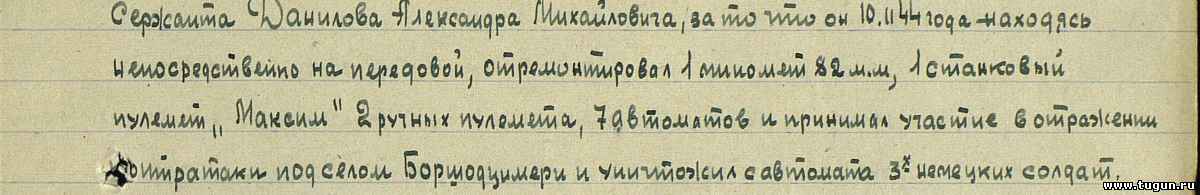 Сержанта Данилова Александра Михайловича, за то что он 10.11 44 года находясь
непосредственно на передовой, отремонтировал 1 миномет 82 м.м, 1 станковый
пулемет „Максим" 2 ручных пулемета, 7 автоматов и принимал участие в отражении
контратаки под селом Боршодцимери и уничтожил с автомата 3х немецких солдат.
www.tugun.ru